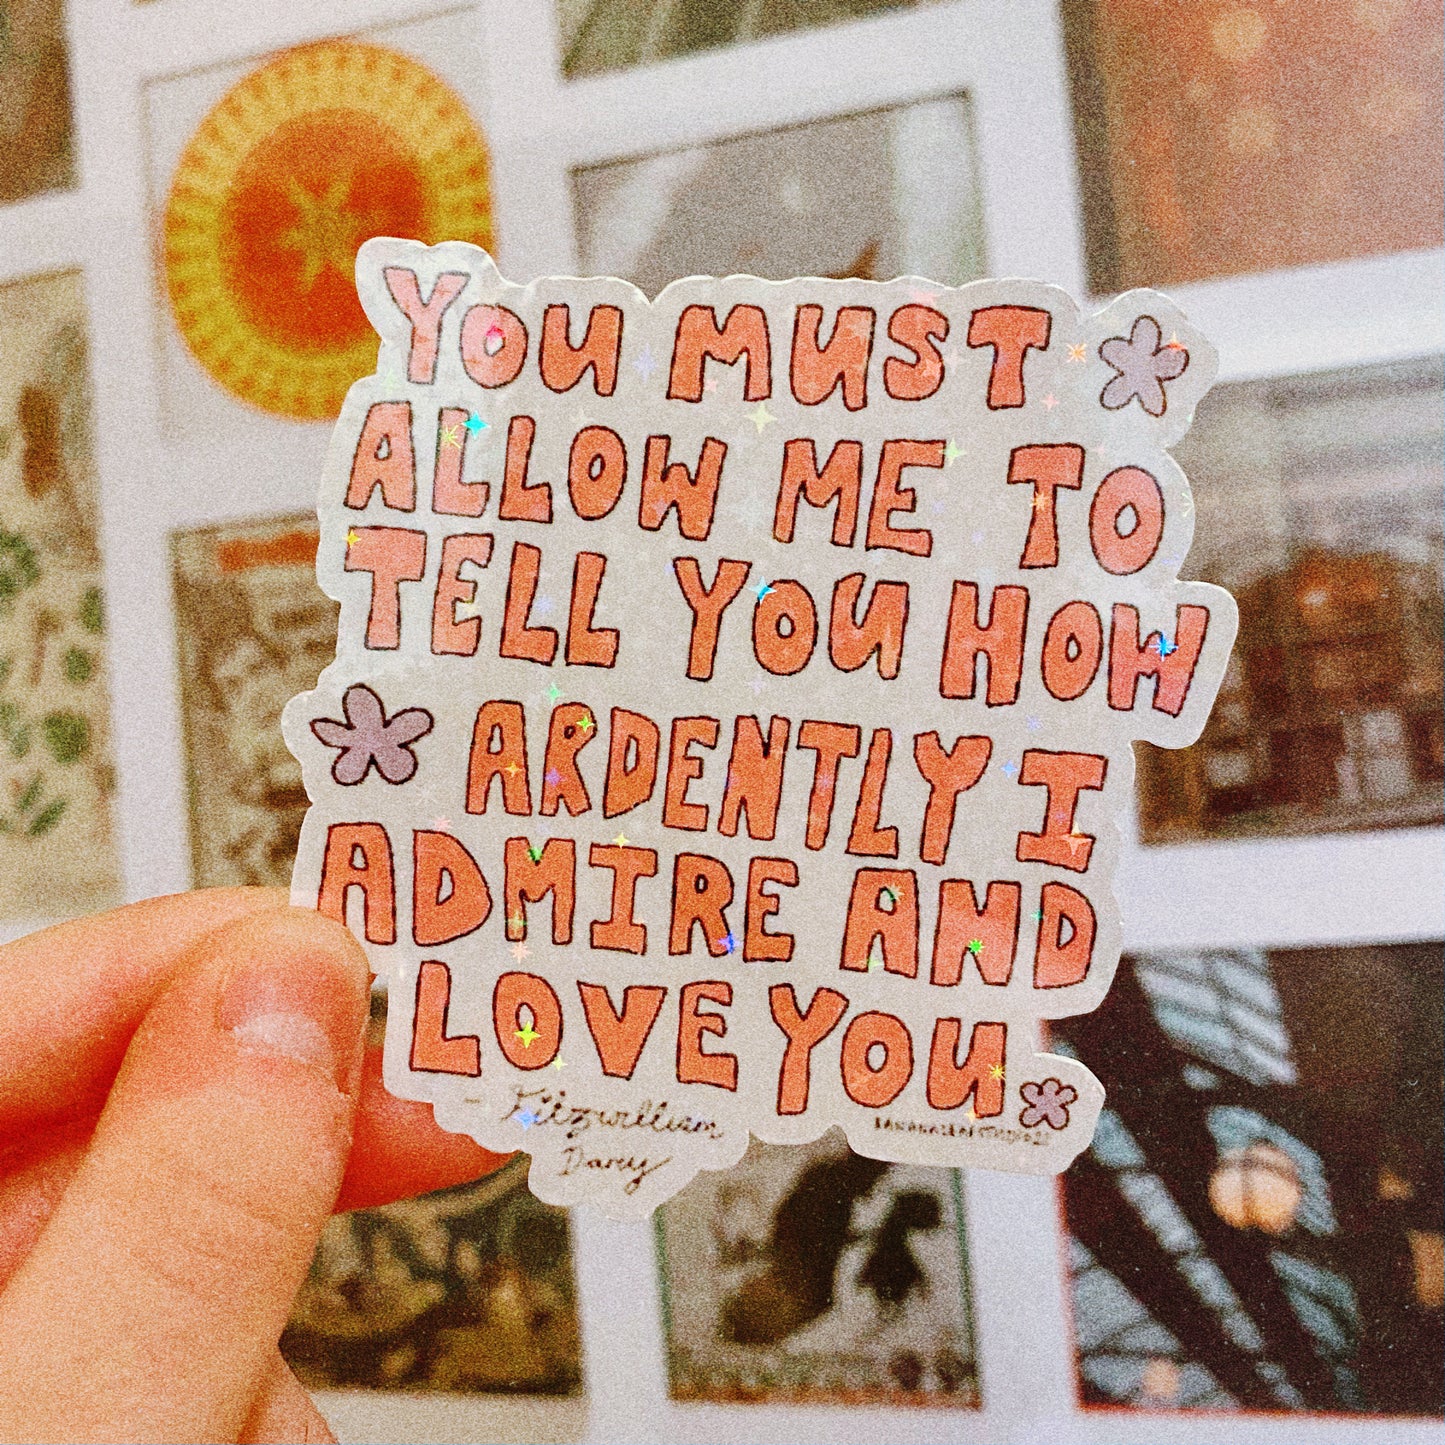 YOU MUST
ALLOW ME TO
TELL YOU HOW
ARDENTLY I
ADMIRE AND
LOVE YOU
- Fitzwilliam
Darcy